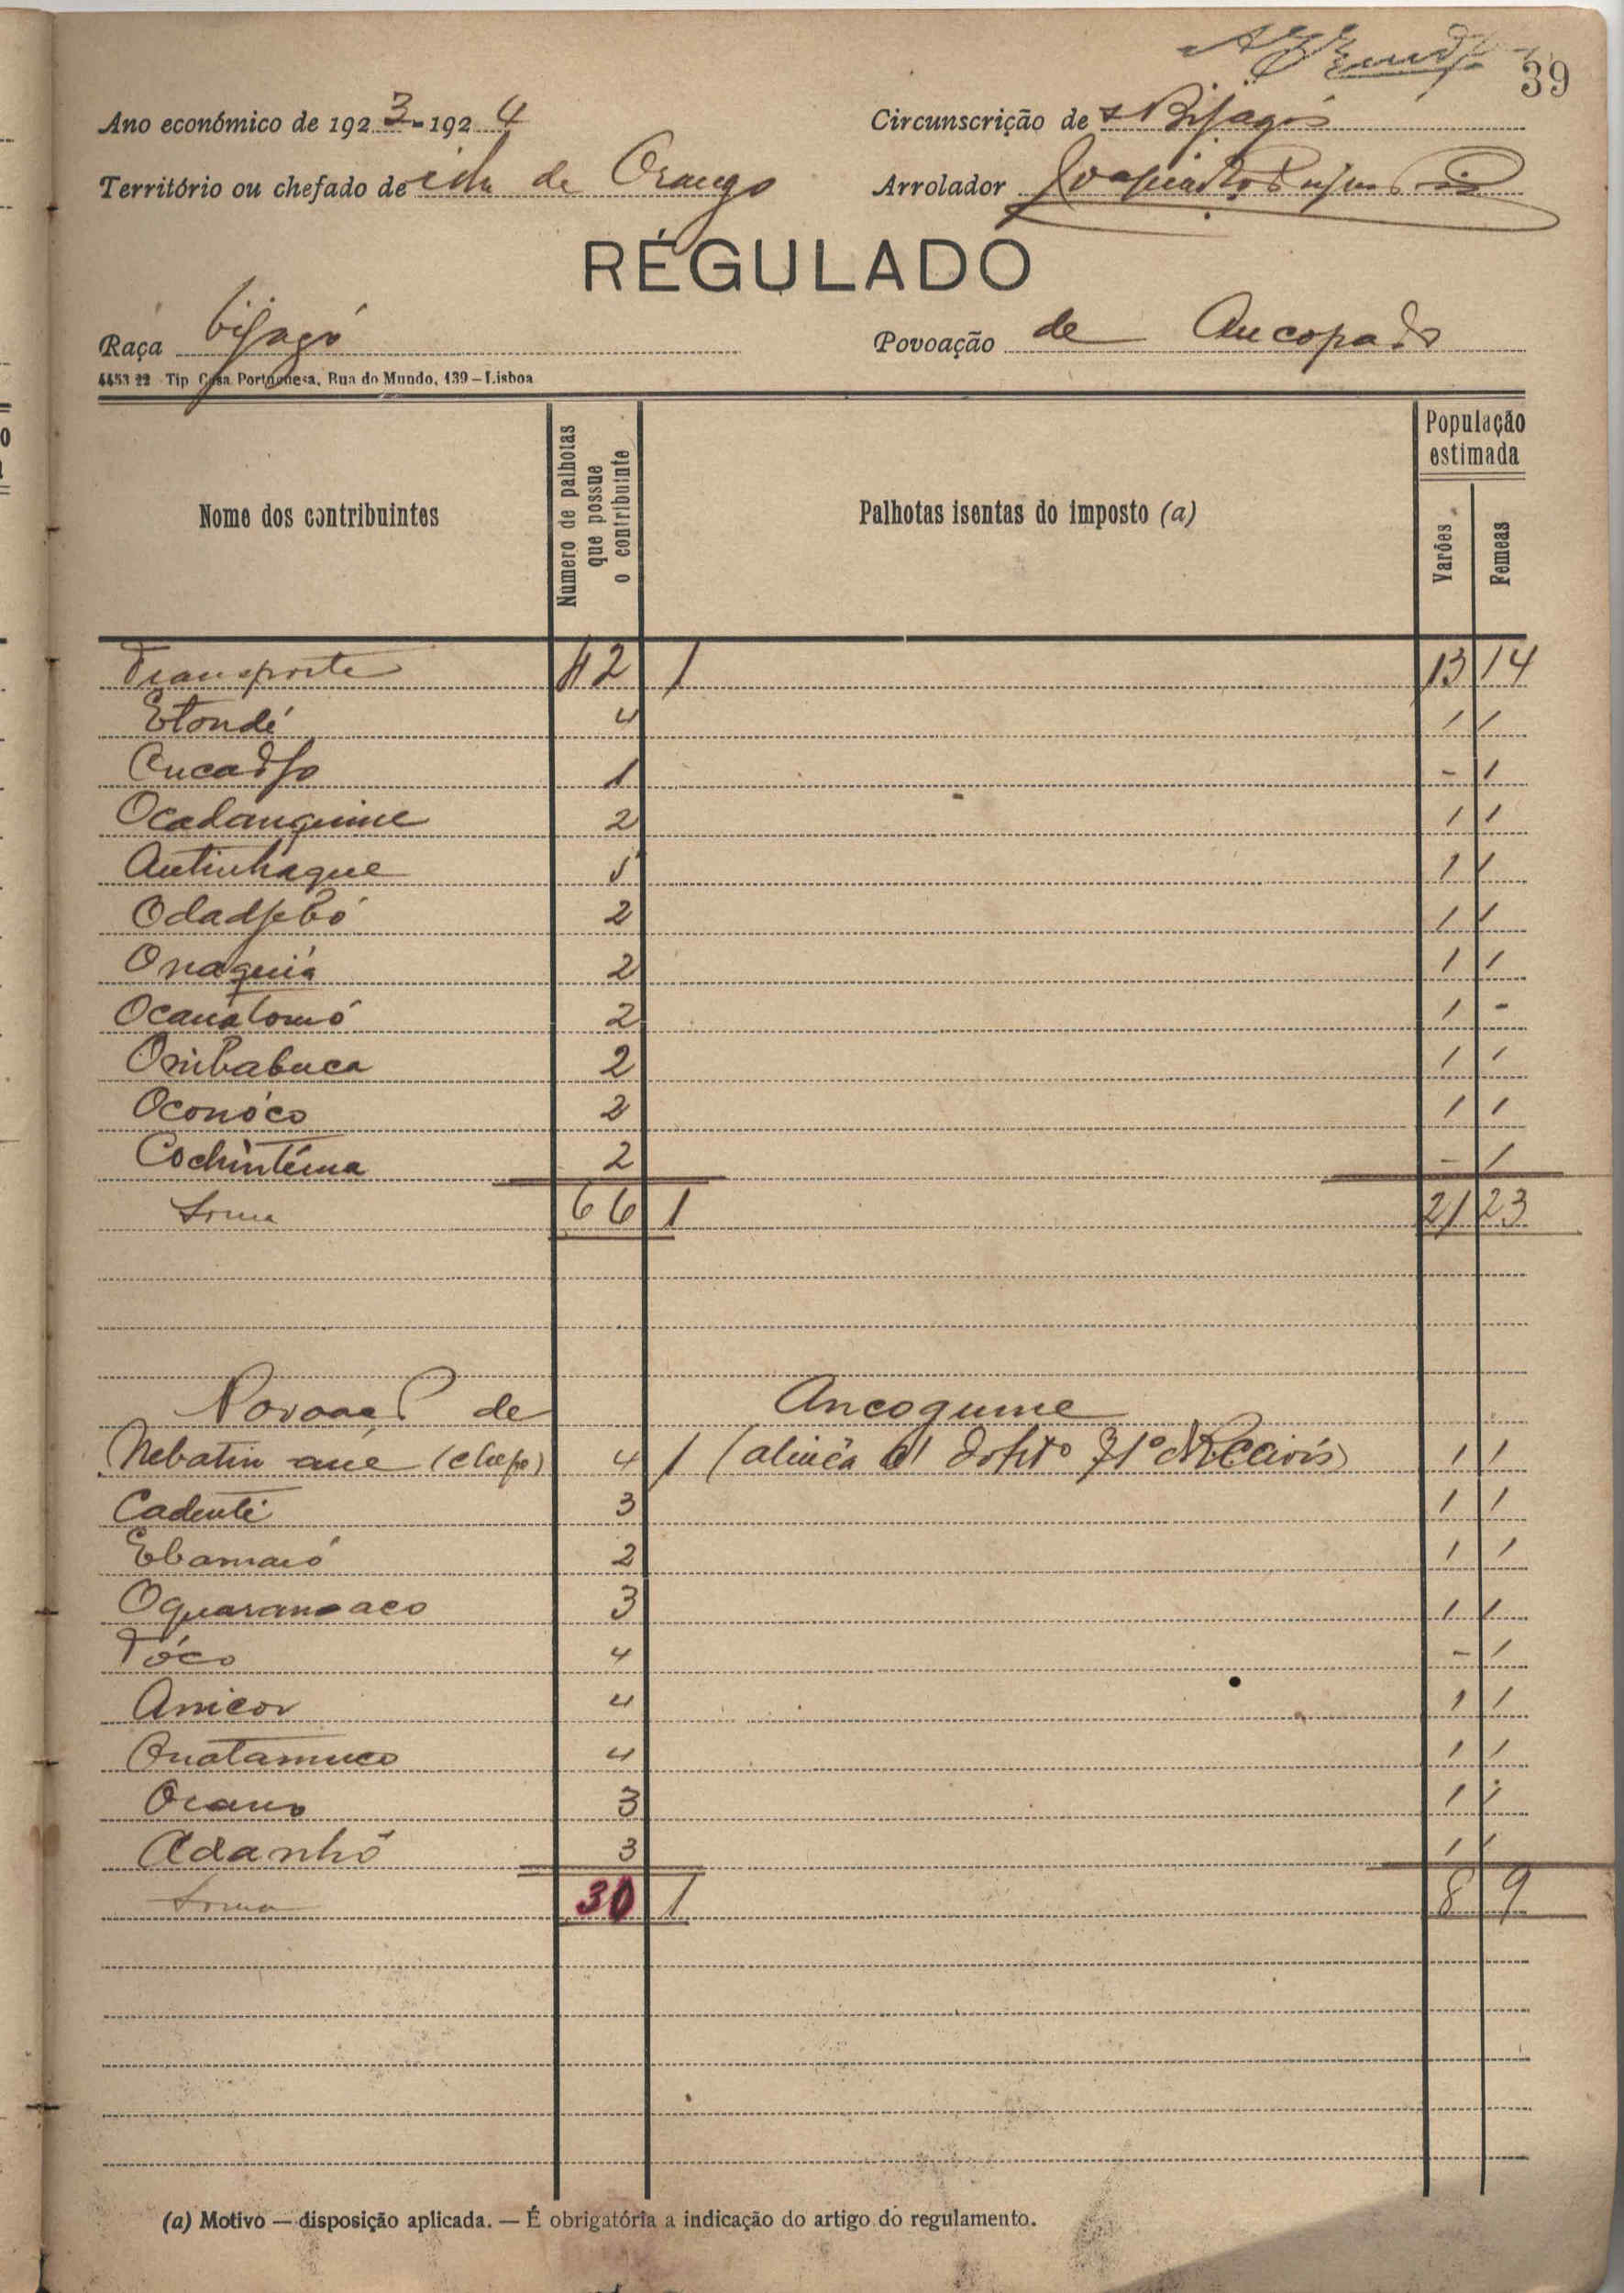 39
Ano económico de 1923-1924 Circunscrição de Bijagós
Território ou chefado de ilha de Orango Arrolador
RÉGULADO
Raça bijagó Povoação de Ancopado
4453 22 Tip Casa Portuguesa, Rua do Mundo, 139 – Lisboa
Nome dos contribuintes Numero de palhotas que possue o contribuinte Palhotas isentas do imposto (a) População estimada Varões Femeas
Transporte 42 1 13 14
Etondé 4 1 1
1 - 1
Ocadanguine 2 1 1
Antinhaque 5 1 1
Odadjebó 2 1 1
Onaquiá 2 1 1
Ocanatomó 2 1 -
Onibabuca 2 1 1
Oconóco 2 1 1
Cochintéma 2 - 1
Soma 66 1 21 23
de Ancogume
Nebatin (chefe) 4 1 (alinêa 1 1
Cadenté 3 1 1
Ebamaió 2 1 1
3 1 1
Tóco 4 - 1
Anicor 4 1 1
Anatamuco 4 1 1
Ocano 3 1 1
Adanhó 3 1 1
Soma 30 1 8 9
(a) Motivo — disposição aplicada. — É obrigatória a indicação do artigo do regulamento.